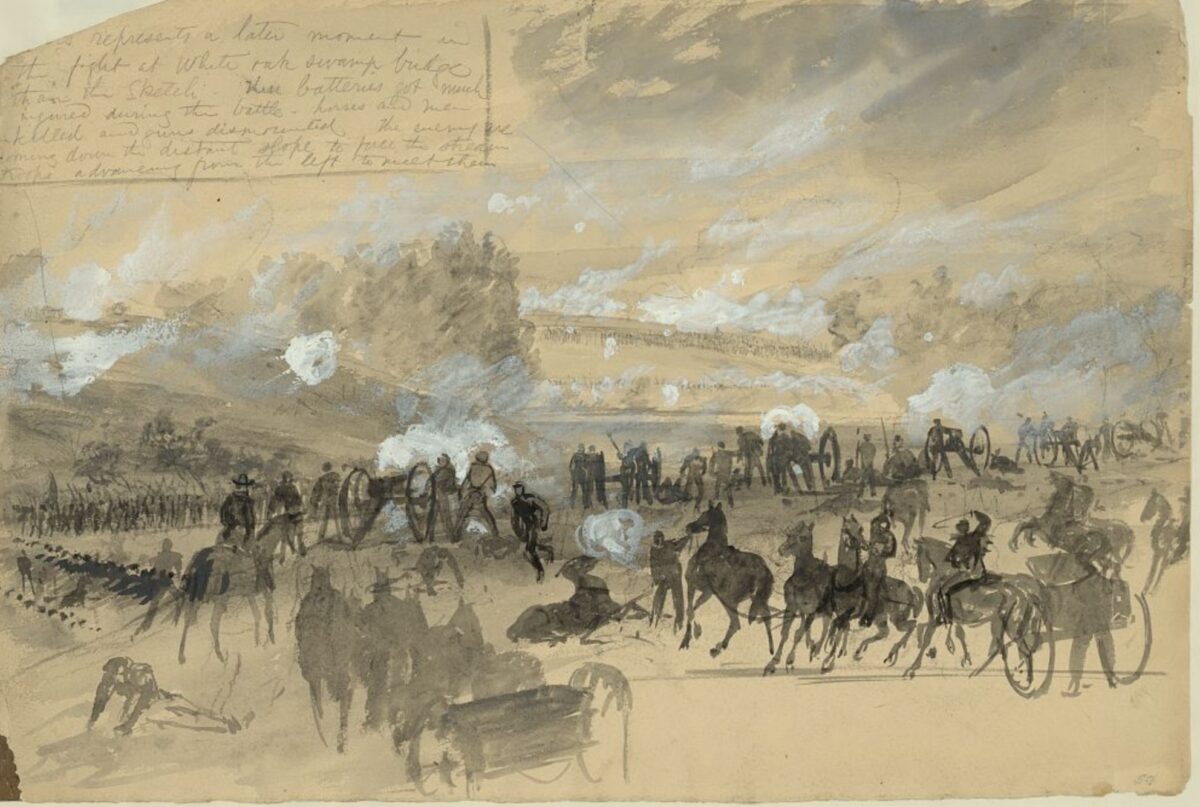 represents a later moment in
the fight at White oak swamp bridge
than the Sketch. These batteries got much
injured during the battle - horses and men
killed and guns dismounted the enemy are
coming down the distant slope to force the stream
troops advancing from the left to meet them